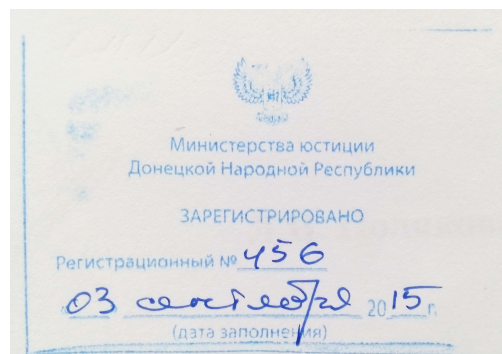 Министерства юстиции
Донецкой Народной Республики
ЗАРЕГИСТРИРОВАНО
Регистрационный № 456
03 сентября 2015 г.
(дата заполнения)